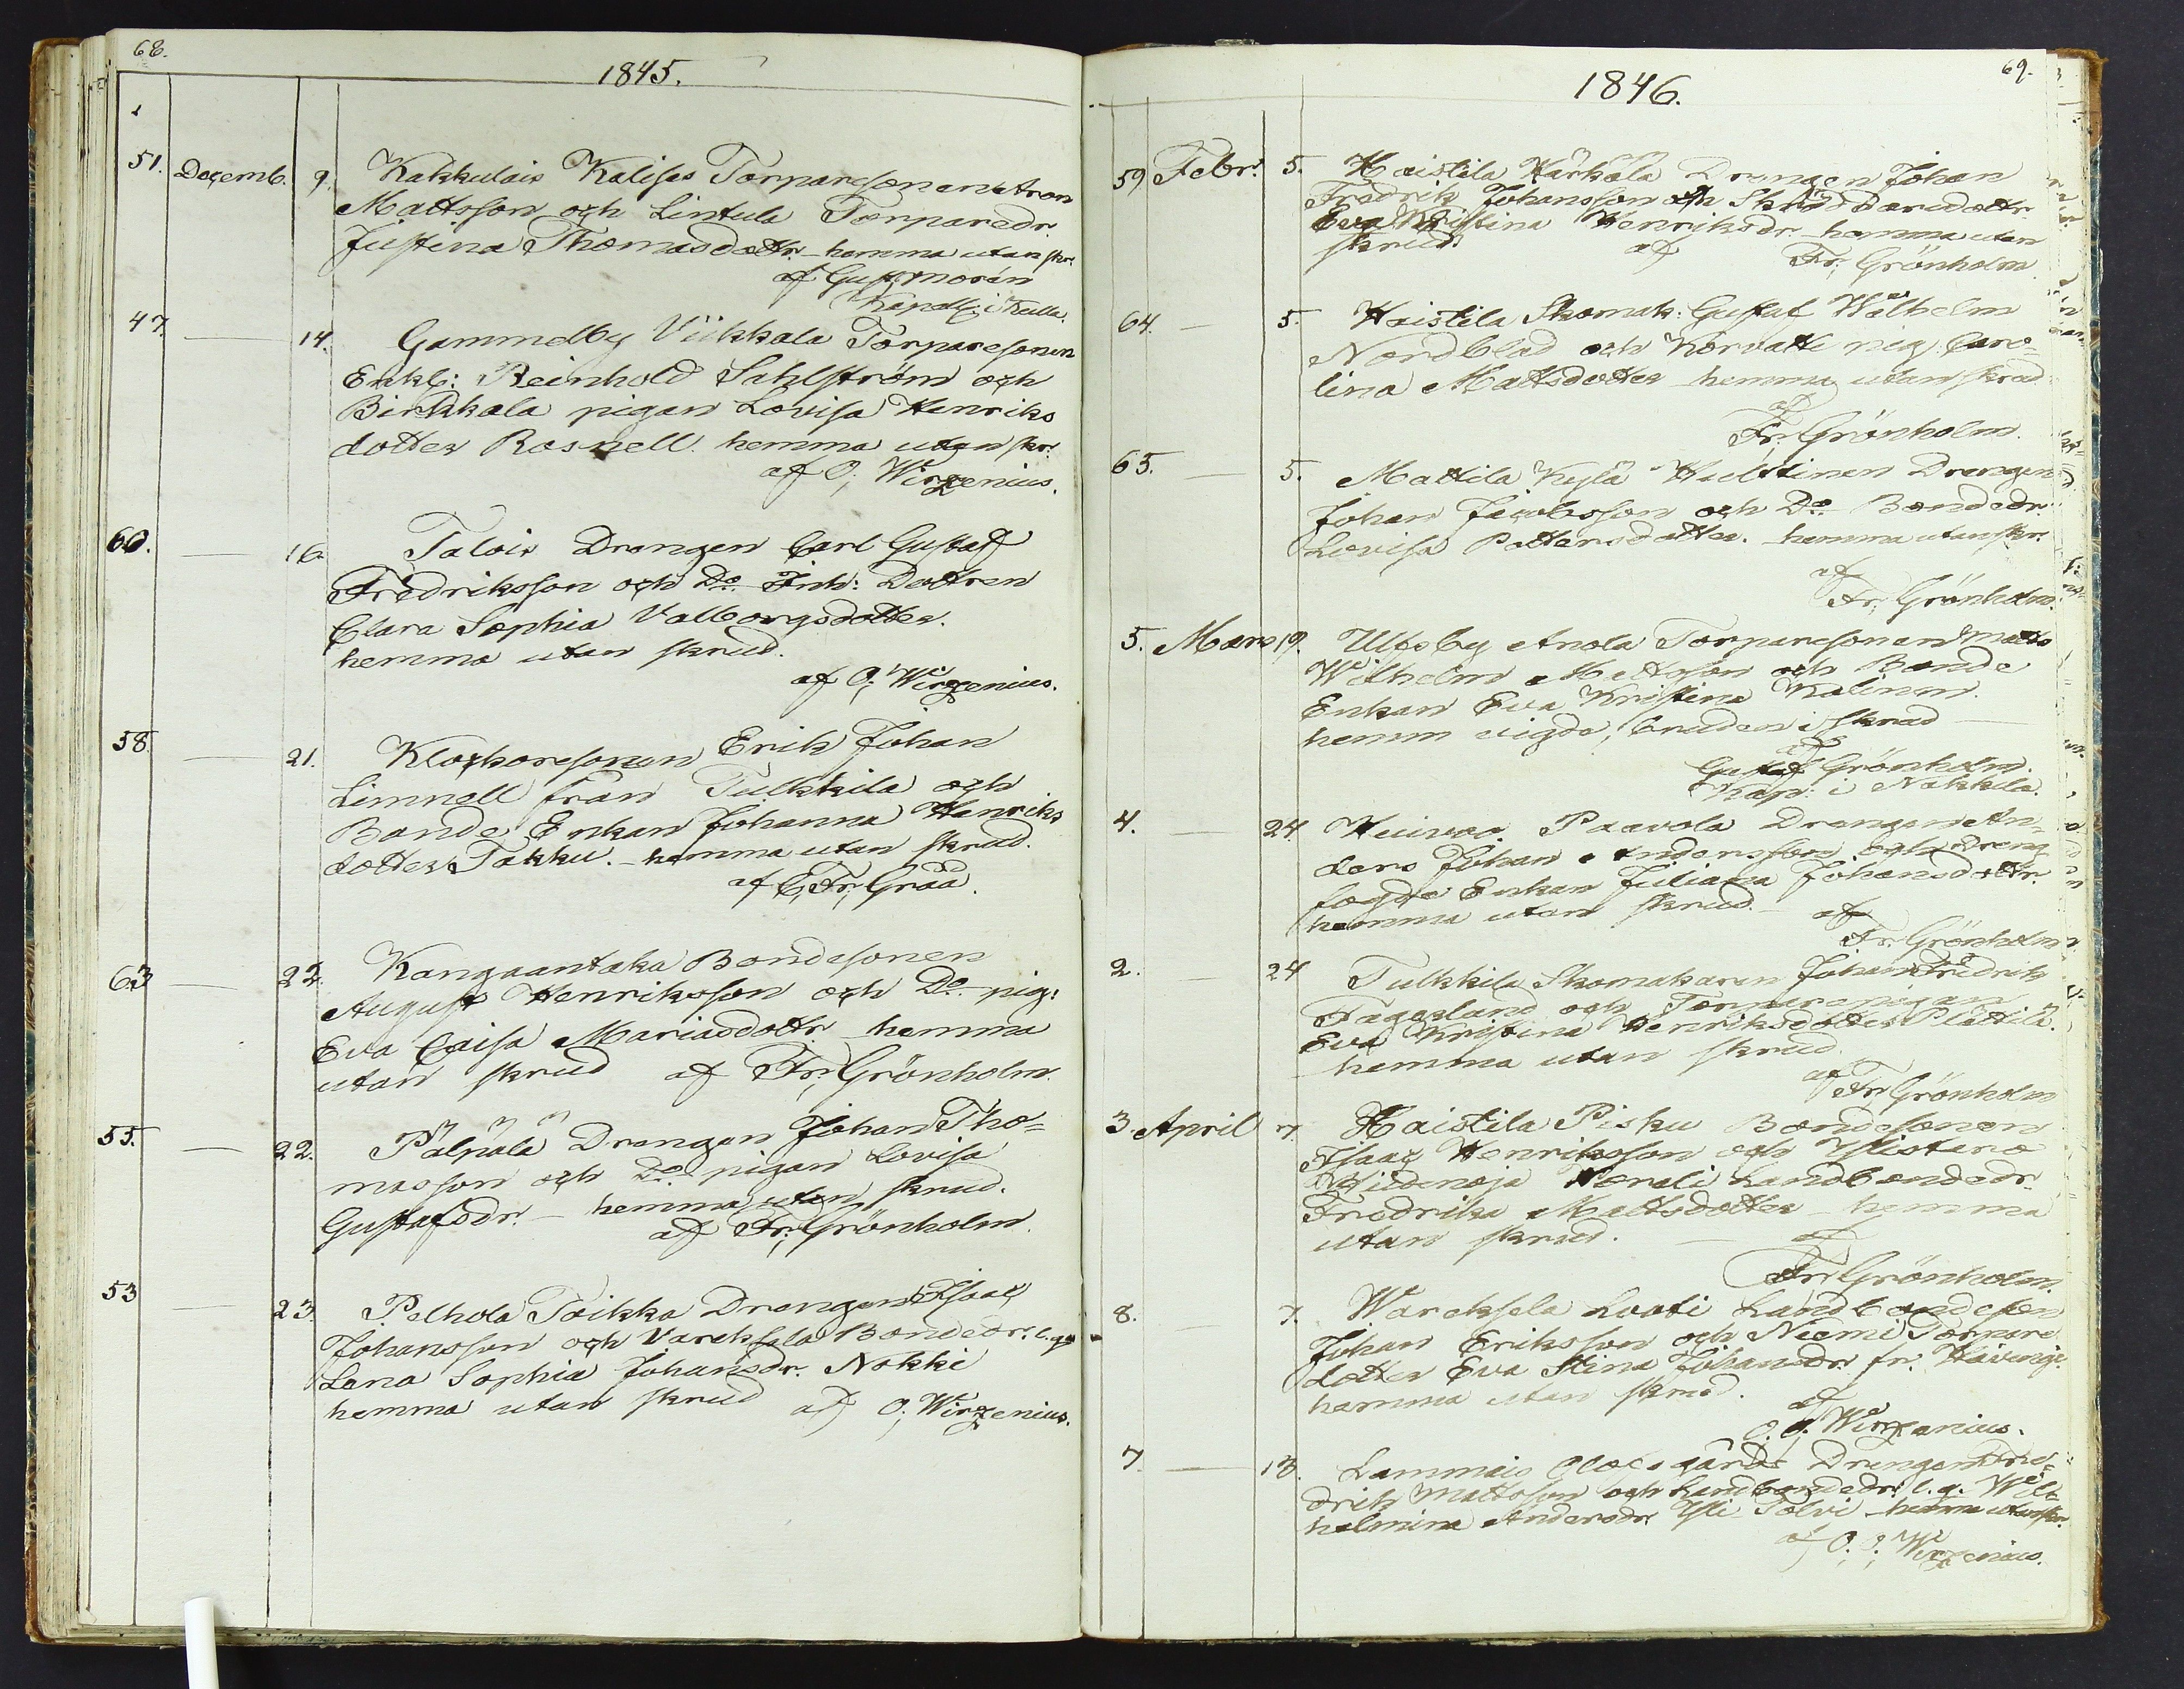 68.
1845.
51. Decemb. 9. Kakkulais Kalisas Torparesonen Aron
Mattsson och Lintula Torparedr.
Justina Thomasdottr. hemma utan skr.
af Gust. Morén
Kapell. i Kulla.
47. — 14. Gammelby Viikkala Torparesonen
Enkl: Reinhold Sahlström och
Birkkala pigan Lovisa Henriks
dotter Rosnell. hemma utan skr.
af O. Wirzenius.
60. — 16. Talois Drengen Carl Gustaf
Fredriksson och Do Inh: Dottren
Clara Sophia Valborgsdotter.
hemma utan skrud.
af O. Wirzenius.
58. — 21. Klockaresonen Erik Johan
Limnell från Tulkkila och
Bonde Enkan Johanna Henriks
dotter Takku. — hemma utan skrud.
af C. Fr. Graå.
63 — 22. Kangaantaka Bondesonen
August Henriksson och Do pig:
Eva Caisa Mariasdottr hemma
utan skrud af Fr. Grönholm.
55. — 22. Pälpälä Drengen Johan Tho=
masson och Do pigan Lovisa
Gustafsdr. — hemma utan skrud.
af Fr. Grönholm.
53 — 23. Pelhola Toikka Drengen Isaac
Johansson och Vareksela Bondedr.
Lena Sophia Johansdr. Nokki
hemma utan skrud af O. Wirzenius.
69.
1846.
59 Febr. 5. Haistila Härkälä Drengen Johan
Fredrik Johansson och Skräddaredottr
Eva Kristina Henriksdr hemma utan
skrud. af Fr. Grönholm
64. — 5. Haistila Skomak: Gustaf Wilhelm
Nordblad och Korvatti pig. Caro=
lina Mattsdotter hemma utan skrud
af
Fr. Grönholm.
65. — 5. Mattila Kylä Huldtinen Drengen
Johan Jacobsson och Do Bondedr.
Lovisa Pettersdotter. hemma utan skr.
af
Fr. Grönholm.
5. Mars 19. Ulfsby Anola Torparesonen Matts
Wilhelm Mattsson och Bonde
Enkan Eva Kristina Kalinen.
hemm vigde, bruden i skrud —
af
Gustaf Grönholm.
Kap: i Nakkila.
4. — 24. Paavola Drengen An=
ders Johan Andersson och Dreng
fogde Enkan Juliana Johansdottr.
hemma utan skrud. — af
Fr. Grönholm
2. — 24 Tulkkila Skomakaren Johan Fredrik
Fagerlund och Torparepigan
Eva Kristina Henriksdotter Plättilä.
hemma utan skrud.
af Fr. Grönholm
3. April 7. Haistila Pisku Bondesonen
Isaac Henriksson och Ylistaro
Nerali Landbondedr.
Fredrika Mattsdotter hemma
utan skrud. — af
Fr. Grönholm.
8. — 7. Wareksela Luoti Landbondeson
Johan Eriksson och Niemi Torpare
dotter Eva Stina Johansdr. fr.
hemma utan skrud. af
O. J. Wirzenius.
7. — 13. Lammais Olofsgårds Drengen Fre=
drik Mattsson och Landbondedr. l. q. Wil=
helmina Andersdr. Yli Tolvi hemma utan skr.
af O. J. Wirzenius.